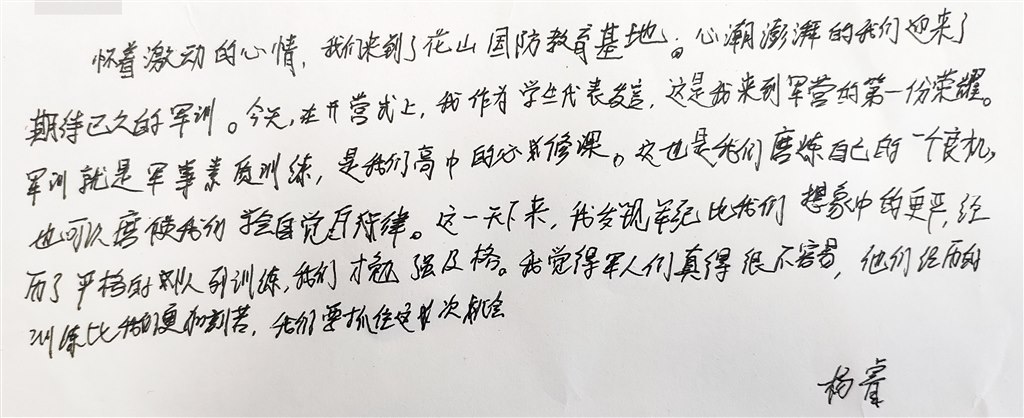 怀着激动的心情，我们来到了花山国防教育基地。心潮澎湃的我们迎来了
期待已久的军训。今天，在开营式上，我作为学生代表发言，这是我来到军营的第一份荣耀。
军训就是军事素质训练，是我们高中的必修课。这也是我们磨炼自己的一个良机，
也可以磨使我们学会自觉自律。这一天下来，我发现军纪比我们想象中的更严，经
历了严格的队列训练，我们才勉强及格。我觉得军人们真得很不容易，他们经历的
训练比我们更加刻苦，我们要抓住这次机会
杨睿